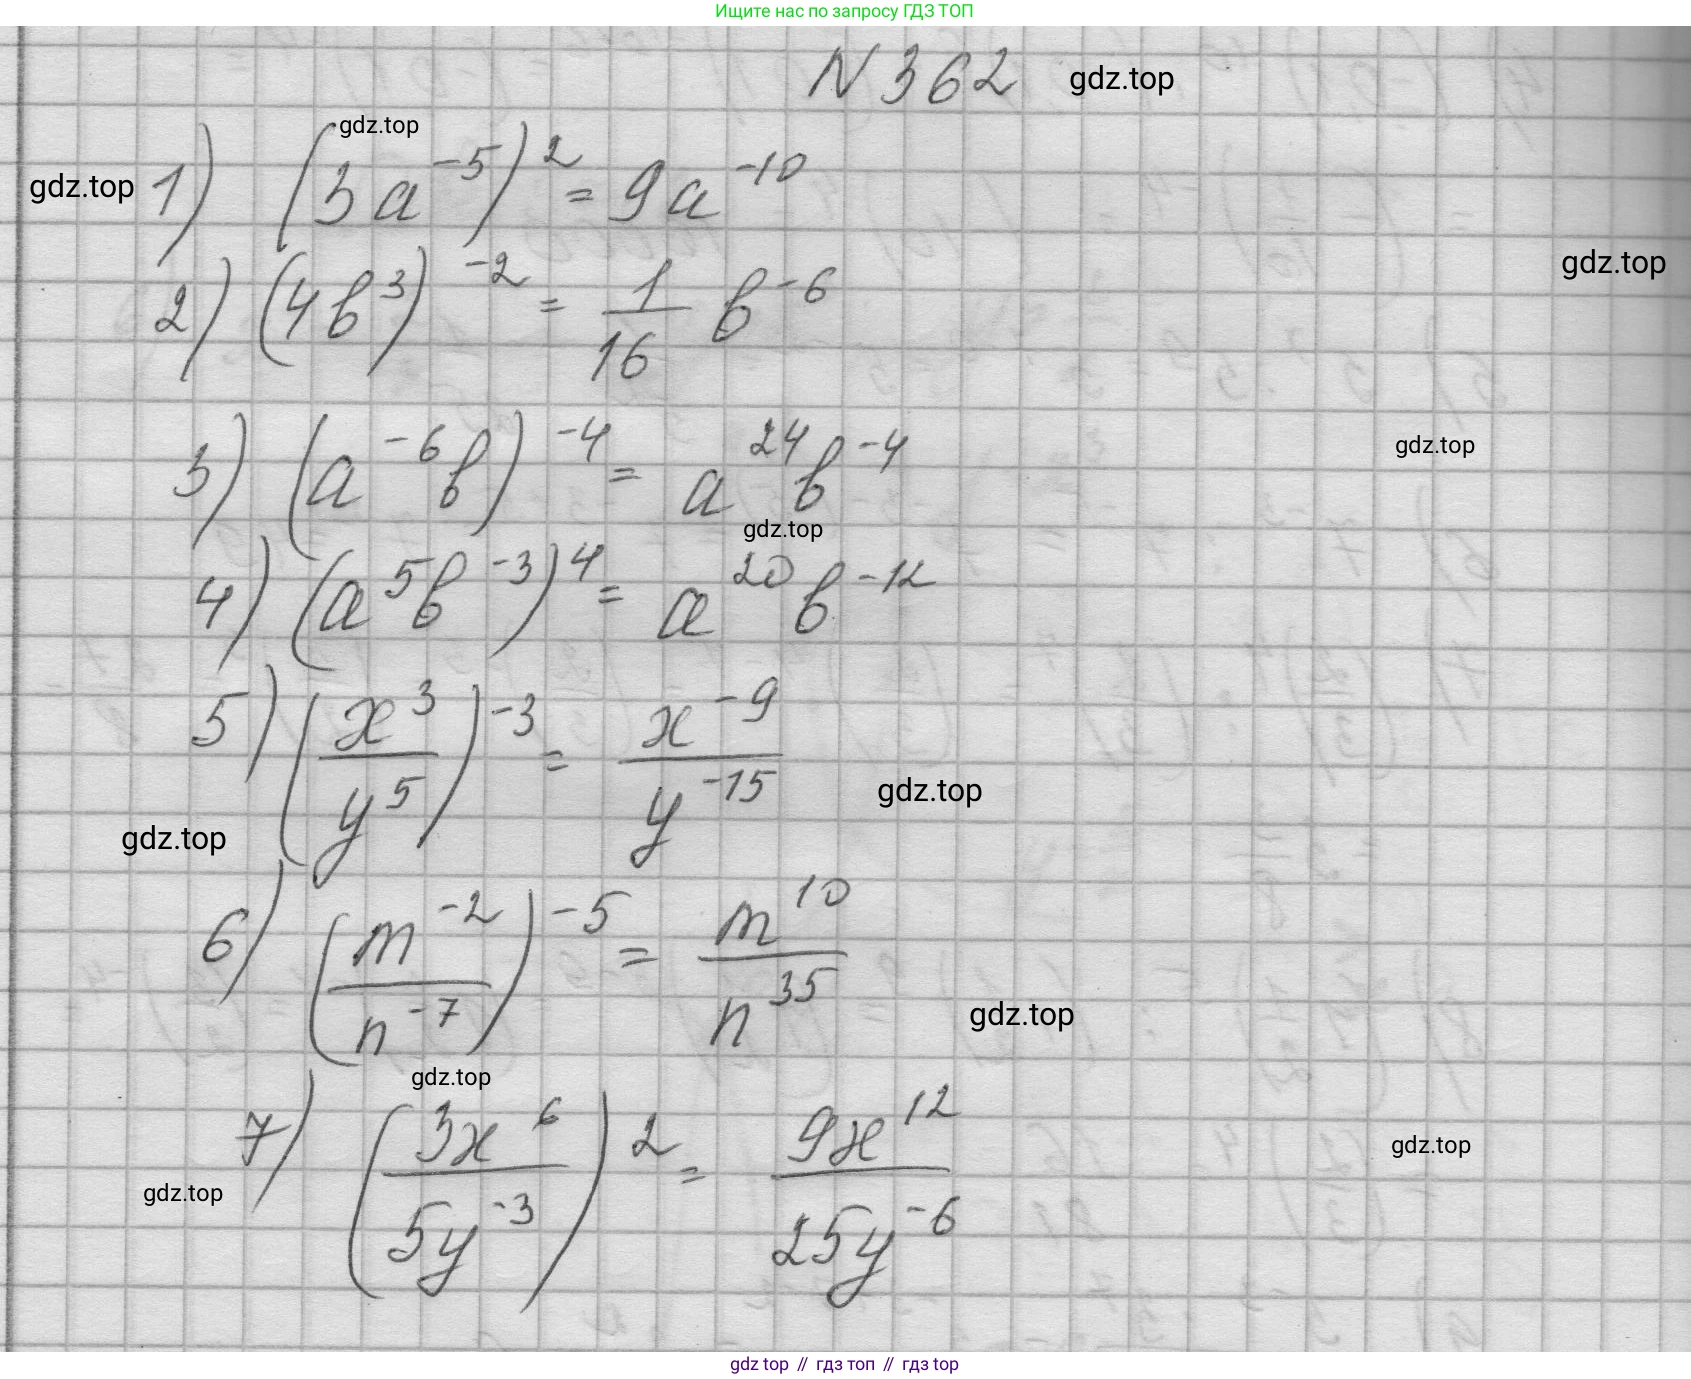 Ищите нас по запросу ГДЗ ТОП
N 362 gdz.top
gdz.top
gdz.top 1) (3a⁻⁵)² = 9a⁻¹⁰
gdz.top
2) (4b³)⁻² = 1/16 b⁻⁶
gdz.top
3) (a⁻⁶b)⁻⁴ = a²⁴b⁻⁴
gdz.top
4) (a⁵b⁻³)⁴ = a²⁰b⁻¹²
5) (x³/y⁵)⁻³ = x⁻⁹/y⁻¹⁵
gdz.top
gdz.top
6) (m⁻²/n⁻⁷)⁻⁵ = m¹⁰/n³⁵
gdz.top
gdz.top
7) (3x⁶/5y⁻³)² = 9x¹²/25y⁻⁶
gdz.top
gdz.top
gdz top // гдз топ // гдз top